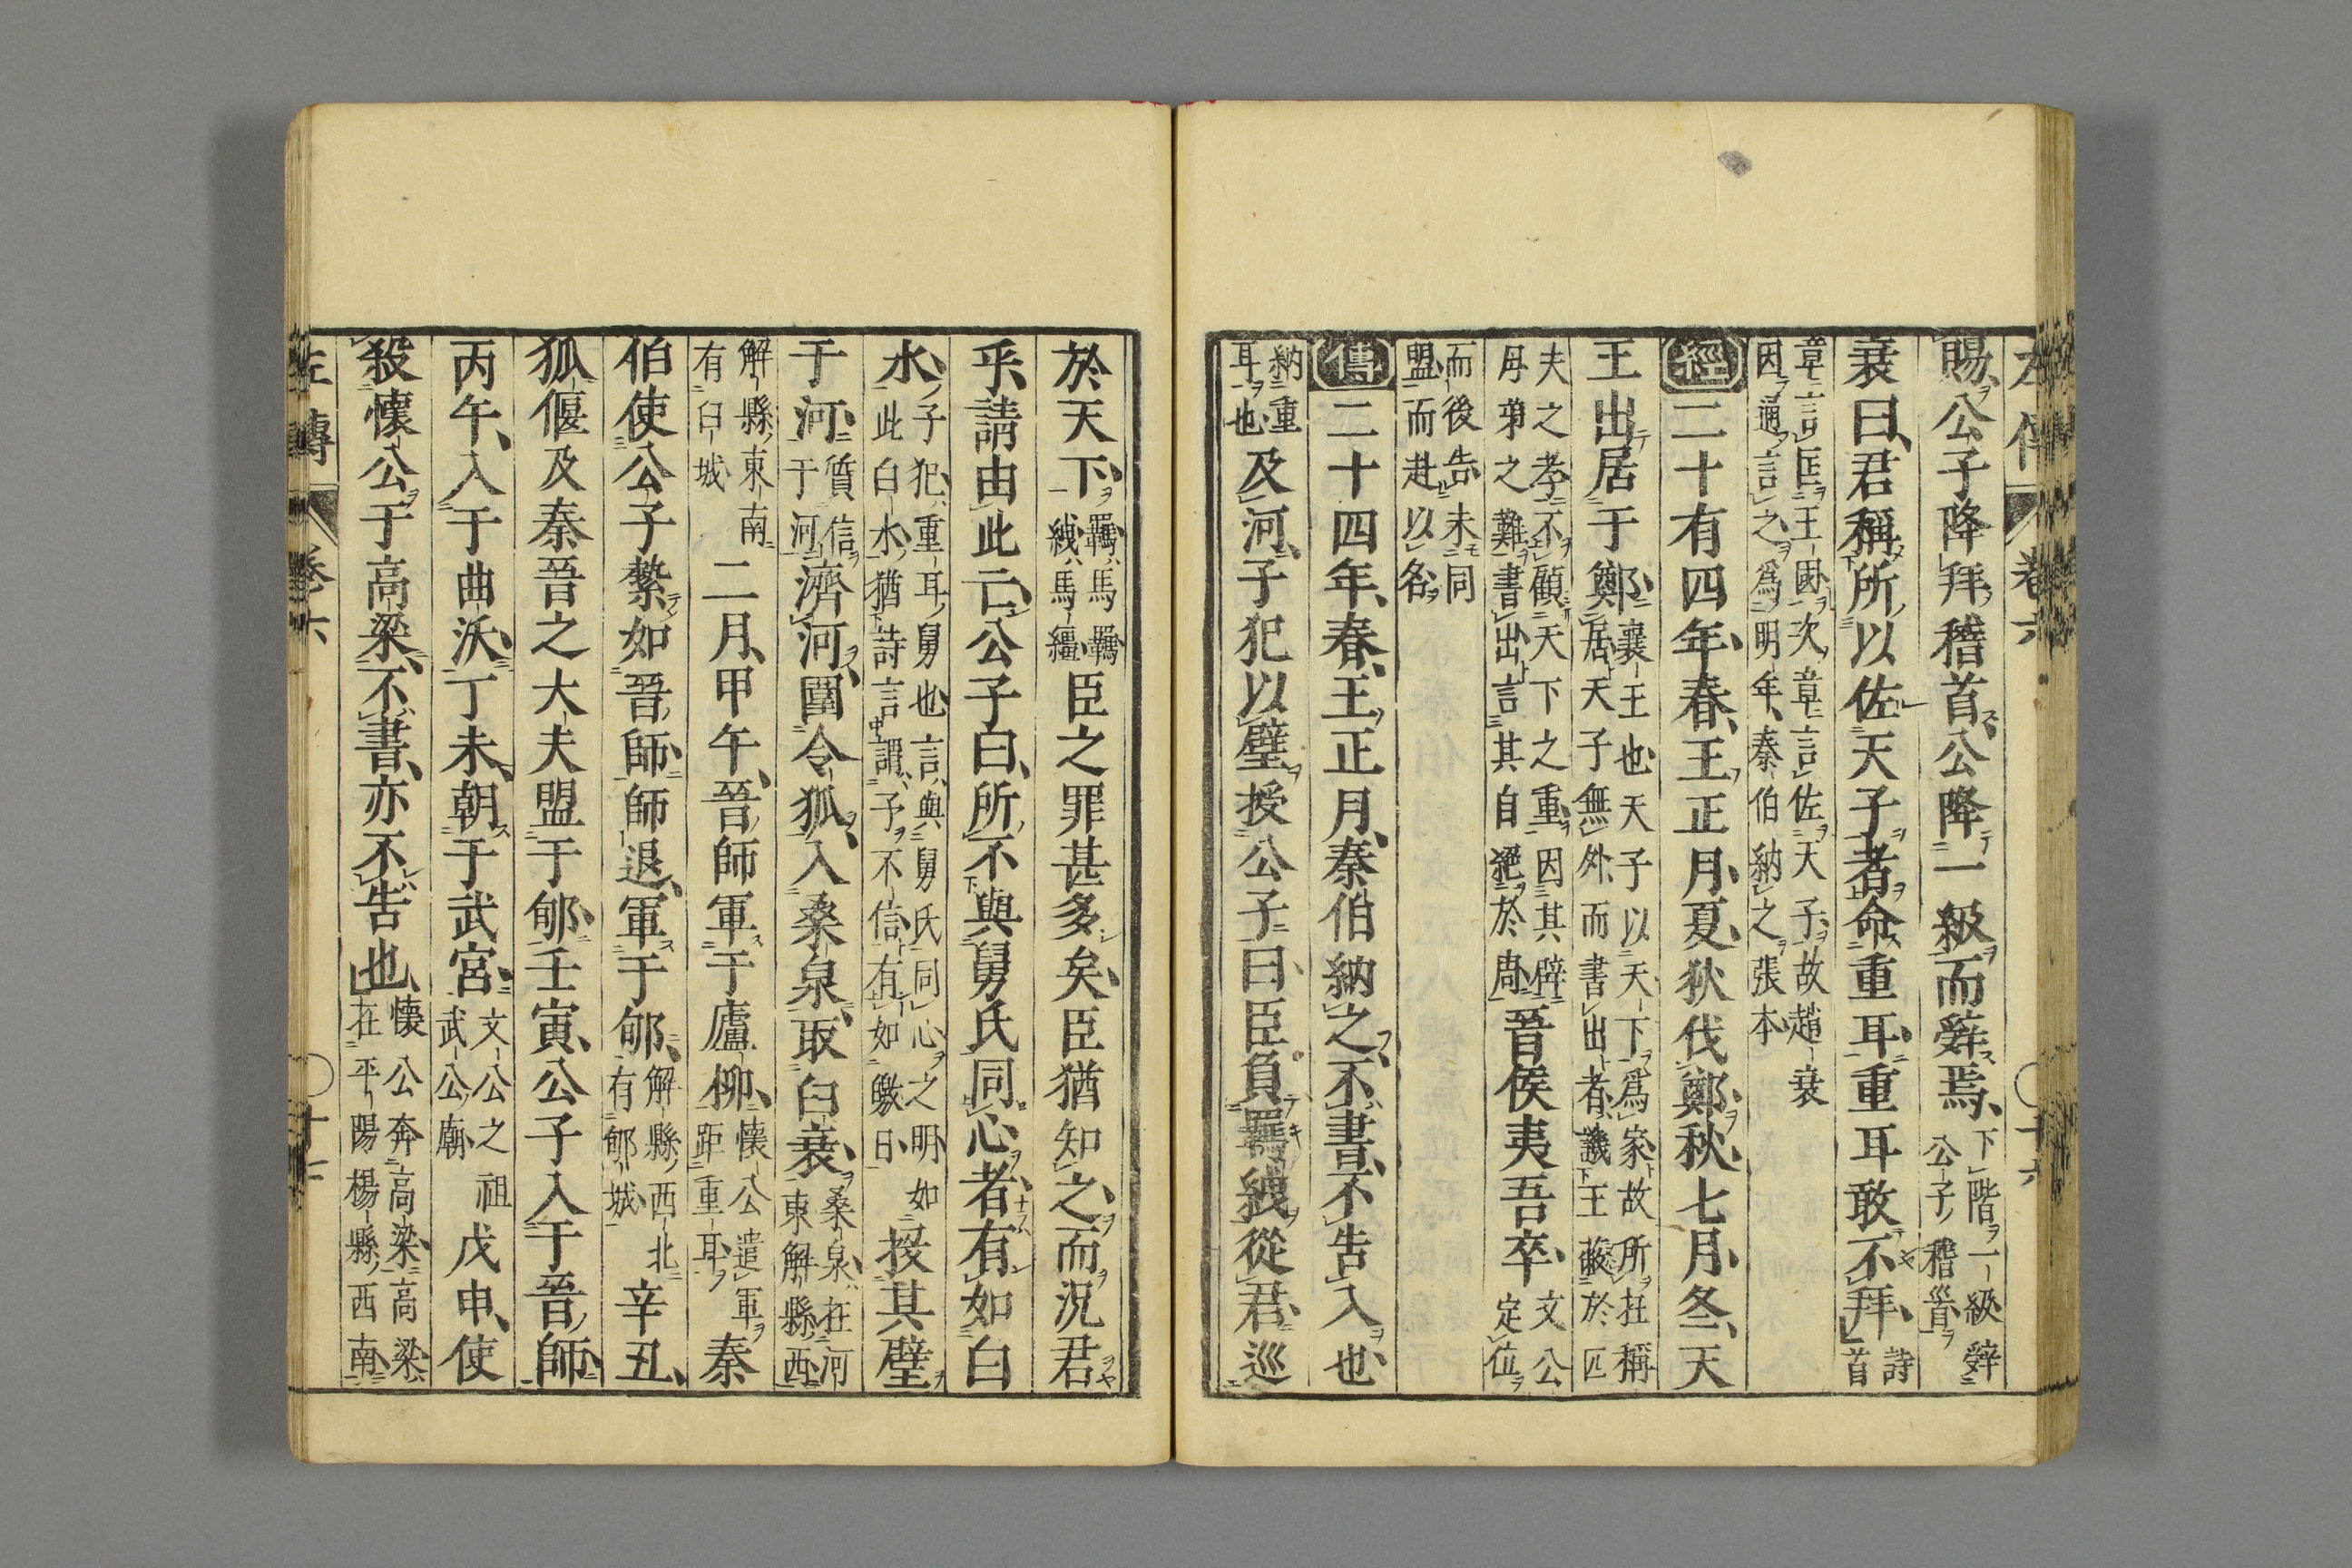 左傳 卷六 〇十六
賜公子降拜稽首公降一級而辭焉下階一級辭公子稽首
衰曰君稱所以佐天子者命重耳重耳敢不拜詩首
章言匡王國次章言佐天子故趙衰因適言之爲明年秦伯納之張本
經二十有四年春王正月夏狄伐鄭秋七月冬天
王出居于鄭襄王也天子以天下爲家故所在稱居天子無外而書出者譏王蔽於匹
夫之孝不顧天下之重因其辟母弟之難書出言其自絕於周晉侯夷吾卒文公定位
而後告未同盟而赴以名
傳二十四年春王正月秦伯納之不書不告入也
納重耳也及河子犯以璧授公子曰臣負羈絏從君巡
於天下羈馬羈絏馬繮臣之罪甚多矣臣猶知之而況君
乎請由此亡公子曰所不與舅氏同心者有如白
水子犯重耳舅也言與舅氏同心之明如此白水猶詩言謂予不信有如皦日投其璧
于河質信于河濟河圍令狐入桑泉取臼衰桑泉在河東解縣西
解縣東南有臼城二月甲午晉師軍于廬柳懷公遣軍距重耳秦
伯使公子縶如晉師師退軍于郇解縣西北有郇城辛丑
狐偃及秦晉之大夫盟于郇壬寅公子入于晉師
丙午入于曲沃丁未朝于武宮文公之祖武公廟戊申使
殺懷公于高梁不書亦不告也懷公奔高梁高梁在平陽楊縣西南
左傳 卷六 〇十七